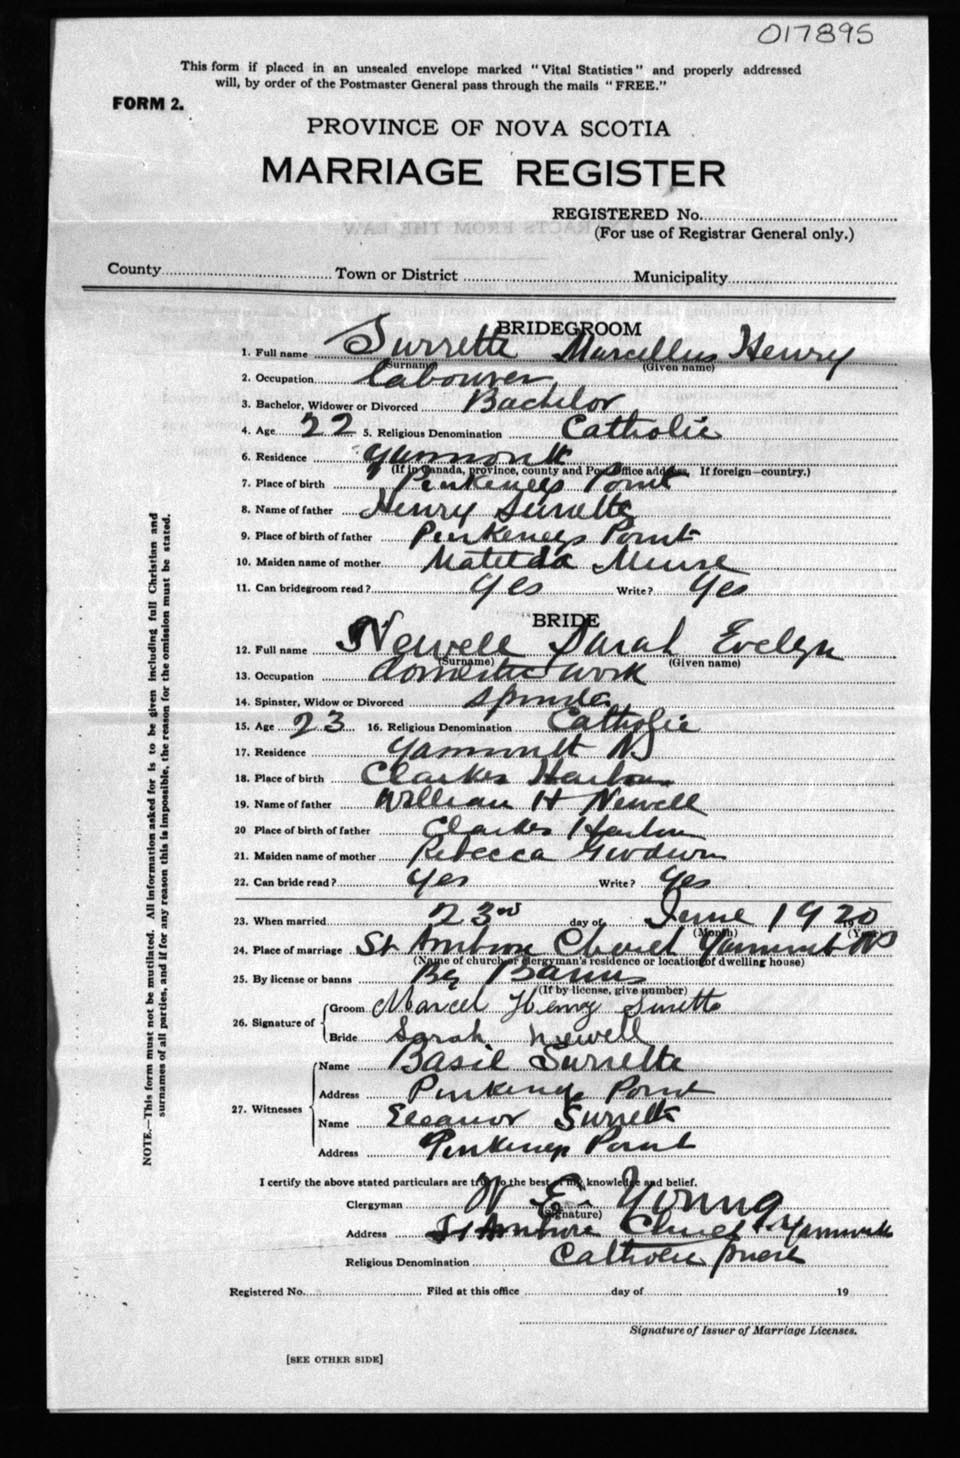 017895
This form if placed in an unsealed envelope marked "Vital Statistics" and properly addressed
will, by order of the Postmaster General pass through the mails "FREE."
FORM 2.
PROVINCE OF NOVA SCOTIA
MARRIAGE REGISTER
REGISTERED No.
(For use of Registrar General only.)
County Town or District Municipality
BRIDEGROOM
1. Full name Surrette Marcellus Henry
(Surname) (Given name)
2. Occupation labourer
3. Bachelor, Widower or Divorced Bachelor
4. Age 22 5. Religious Denomination Catholic
6. Residence Yarmouth
(If in Canada, province, county and Post Office address. If foreign—country.)
7. Place of birth Pinkneys Point
8. Name of father Henry Surrette
9. Place of birth of father Pinkneys Point
10. Maiden name of mother Matilda Muise
11. Can bridegroom read? Yes Write? Yes
BRIDE
12. Full name Newell Sarah Evelyn
(Surname) (Given name)
13. Occupation domestic work
14. Spinster, Widow or Divorced
15. Age 23 16. Religious Denomination Catholic
17. Residence Yarmouth NS
18. Place of birth Clarkes Harbour
19. Name of father William H Newell
20 Place of birth of father Clarkes Harbour
21. Maiden name of mother Rebecca Goodwin
22. Can bride read? Yes Write? Yes
23. When married 23rd day of June 1920
(Month)
24. Place of marriage St Ambrose Church Yarmouth NS
(Name of church or clergyman's residence or location of dwelling house)
25. By license or banns By Banns
(If by license, give number)
26. Signature of
Groom Marcel Henry Surette
Bride Sarah Newell
27. Witnesses
Name Basil Surrette
Address Pinkney Point
Name Eleanor Surrette
Address Pinkneys Point
I certify the above stated particulars are true to the best of my knowledge and belief.
Clergyman W E Young
(Signature)
Address St Ambrose Church Yarmouth
Religious Denomination Catholic priest
Registered No. Filed at this office day of 19
Signature of Issuer of Marriage Licenses.
[SEE OTHER SIDE]
NOTE.—This form must not be mutilated. All information asked for is to be given including full Christian and
surnames of all parties, and if for any reason this is impossible, the reason for the omission must be stated.